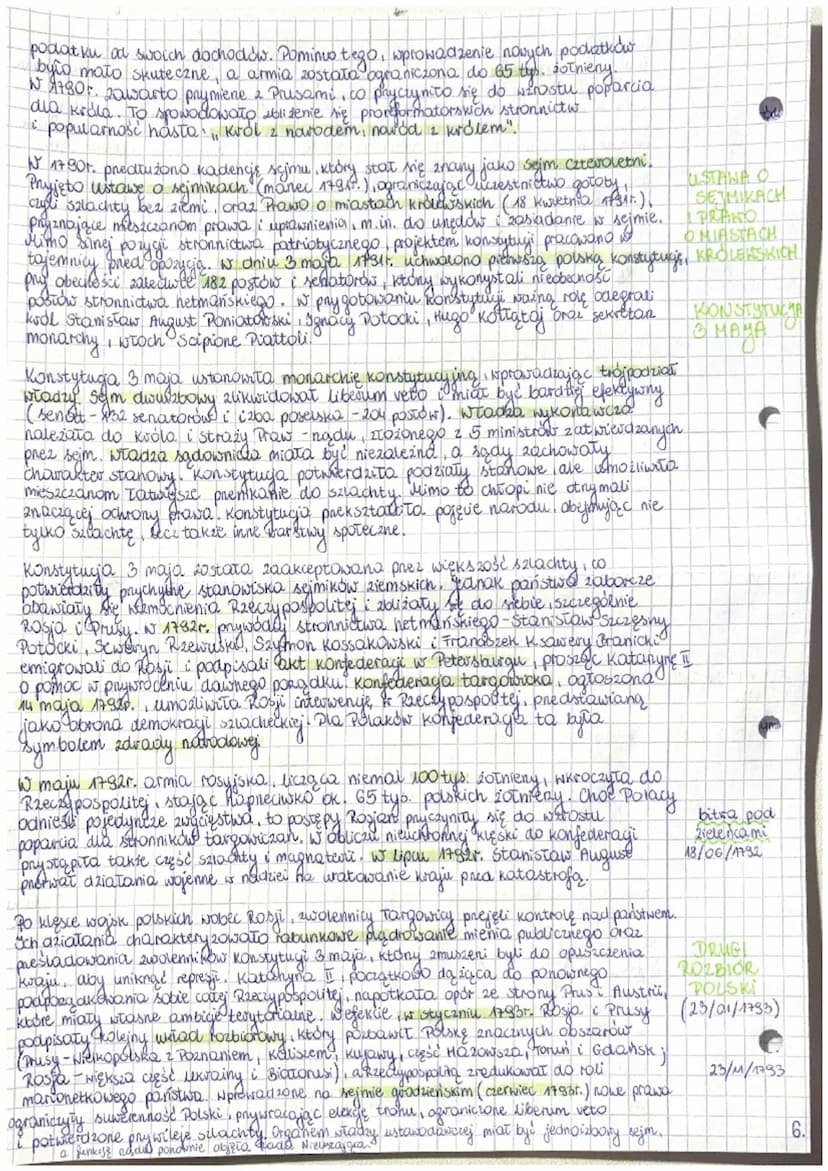 podatku od swoich dochodów. Pomimo tego, wprowadzenie nowych podatków
było mało skuteczne, a armia została ograniczona do 65 tys. żołnierzy.
W 1790r. zawarto przymierze z Prusami, co przyczyniło się do wzrostu poparcia
dla króla. To spowodowało zbliżenie się proreformatorskich stronnictw
i popularność hasła: „Król z narodem, naród z królem".
W 1790r. przedłużono kadencję sejmu, który stał się znany jako Sejm Czteroletni.
Przyjęto ustawę o sejmikach (marzec 1791r.), ograniczając uczestnictwo gołoty,
czyli szlachty bez ziemi, oraz Prawo o miastach królewskich (18 kwietnia 1791r.),
przyznające mieszczanom prawa i uprawnienia, m.in. do urzędów i zasiadanie w sejmie.
Mimo silnej pozycji stronnictwa patriotycznego, projektem konstytucji pracowano w
tajemnicy przed opozycją. W dniu 3 maja 1791r. uchwalono pierwszą polską konstytucję,
przy obecności zaledwie 182 posłów i senatorów, który wykorzystali nieobecność
posłów stronnictwa hetmańskiego. W przygotowaniu konstytucji ważną rolę odegrali
król Stanisław August Poniatowski, Ignacy Potocki, Hugo Kołłątaj oraz sekretarz
monarchy, włoch Scipione Piattoli.
USTAWA O
SEJMIKACH
I PRAWO
O MIASTACH
KRÓLEWSKICH
KONSTYTUCJA
3 MAJA
Konstytucja 3 maja ustanowiła monarchię konstytucyjną, wprowadzając trójpodział
władzy. Sejm dwuizbowy zlikwidował liberum veto i miał być bardziej efektywny
(senat - 132 senatorów i izba poselska - 204 posłów). Władza wykonawcza
należała do króla i straży Praw - rządu, złożonego z 5 ministrów zatwierdzanych
przez sejm. Władza sądownicza miała być niezależna, a sądy zachowały
charakter stanowy. Konstytucja potwierdziła podziały stanowe, ale umożliwiła
mieszczanom łatwiejsze przenikanie do szlachty. Mimo to chłopi nie otrzymali
znaczącej ochrony prawa. Konstytucja przekształciła pojęcie narodu, obejmując nie
tylko szlachtę, lecz także inne warstwy społeczne.
Konstytucja 3 maja została zaakceptowana przez większość szlachty, co
potwierdziły przychylne stanowiska sejmików ziemskich. Jednak państwa zaborcze
obawiały się wzmocnienia Rzeczypospolitej i zbliżały się do siebie, szczególnie
Rosja i Prusy. W 1792r. przywódcy stronnictwa hetmańskiego - Stanisław Szczęsny
Potocki, Seweryn Rzewuski, Szymon Kossakowski i Franciszek Ksawery Branicki
emigrowali do Rosji i podpisali akt konfederacji w Petersburgu, prosząc Katarzynę II
o pomoc w przywróceniu dawnego porządku. Konfederacja targowicka, ogłoszona
14 maja 1792r., umożliwiła Rosji interwencję w Rzeczypospolitej, przedstawianą
jako obrona demokracji szlacheckiej. Dla Polaków konfederacja ta była
symbolem zdrady narodowej
W maju 1792r. armia rosyjska, licząca niemal 100 tys. żołnierzy, wkroczyła do
Rzeczypospolitej, stając naprzeciwko ok. 65 tys. polskich żołnierzy. Choć Polacy
odnieśli pojedyncze zwycięstwa, to postępy Rosjan przyczyniły się do wzrostu
poparcia dla stronników targowiczan. W obliczu nieuchronnej klęski do konfederacji
przystąpiła także część szlachty i magnaterii. W lipcu 1792r. Stanisław August
przerwał działania wojenne w nadziei na uratowanie kraju przed katastrofą.
bitwa pod
Zieleńcami
18/06/1792
Po klęsce wojsk polskich wobec Rosji, zwolennicy Targowicy przejęli kontrolę nad państwem.
Ich działania charakteryzowało rabunkowe plądrowanie mienia publicznego oraz
prześladowania zwolenników konstytucji 3 maja, którzy zmuszeni byli do opuszczenia
kraju, aby uniknąć represji. Katarzyna II, początkowo dążąca do ponownego
podporządkowania sobie całej Rzeczypospolitej, napotkała opór ze strony Prus i Austrii,
które miały własne ambicje terytorialne. W efekcie, w styczniu 1793r. Rosja i Prusy
podpisały kolejny układ rozbiorowy, który pozbawił Polskę znacznych obszarów
(Prusy - Wielkopolska z Poznaniem, Kaliszem, Kujawy, część Mazowsza, Toruń i Gdańsk;
Rosja - większa część Ukrainy i Białorusi), a Rzeczpospolitą zredukował do roli
marionetkowego państwa. Wprowadzone na sejmie grodzieńskim (czerwiec 1793r.) nowe prawa
ograniczyły suwerenność Polski, przywracając elekcję tronu, ograniczone liberum veto
i potwierdzone przywileje szlachty. Organem władzy ustawodawczej miał być jednoizbowy sejm,
a funkcję rządu ponownie objęła Rada Nieustająca.
DRUGI
ROZBIÓR
POLSKI
(23/01/1793)
23/11/1793
6.